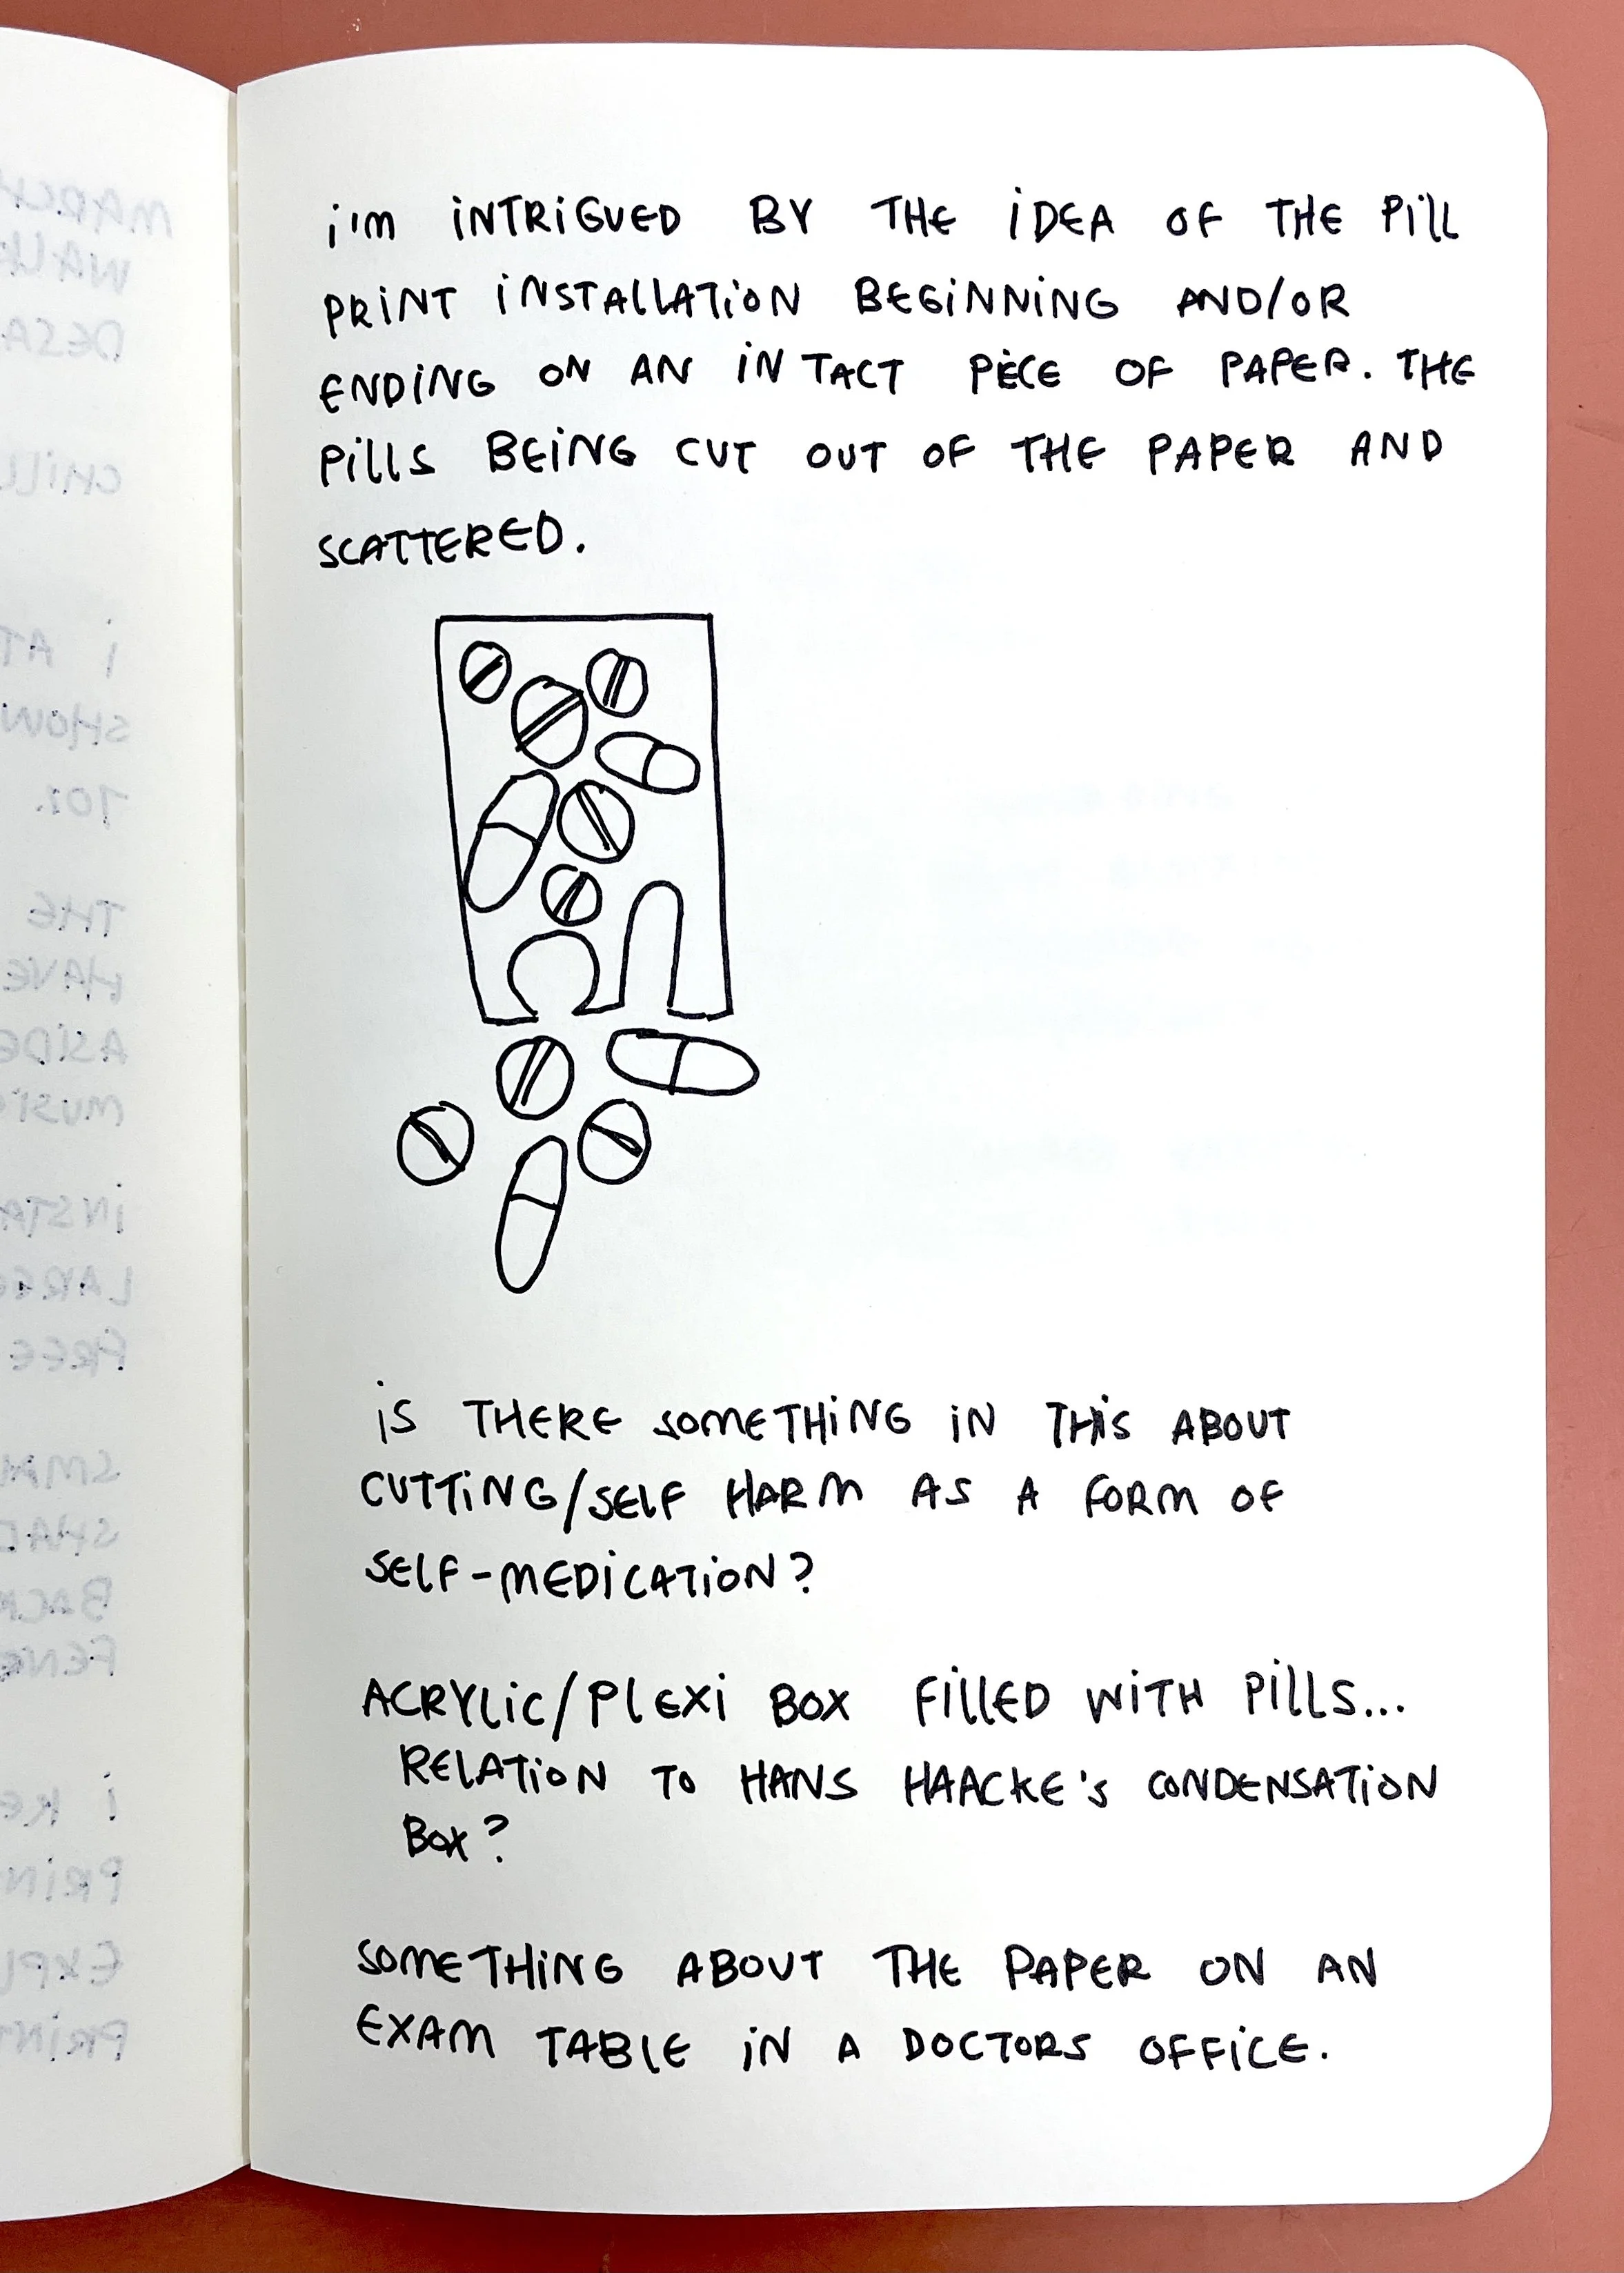 i'm INTRIGUED BY THE IDEA OF THE PILL
PRINT INSTALLATION BEGINNING AND/OR
ENDING ON AN INTACT PIECE OF PAPER. THE
PILLS BEING CUT OUT OF THE PAPER AND
SCATTERED.
IS THERE SOMETHING IN THIS ABOUT
CUTTING/SELF HARM AS A FORM OF
SELF-MEDICATION?
ACRYLIC/PLEXI BOX FILLED WITH PILLS...
RELATION TO HANS HAACKE'S CONDENSATION
BOX?
SOMETHING ABOUT THE PAPER ON AN
EXAM TABLE IN A DOCTORS OFFICE.